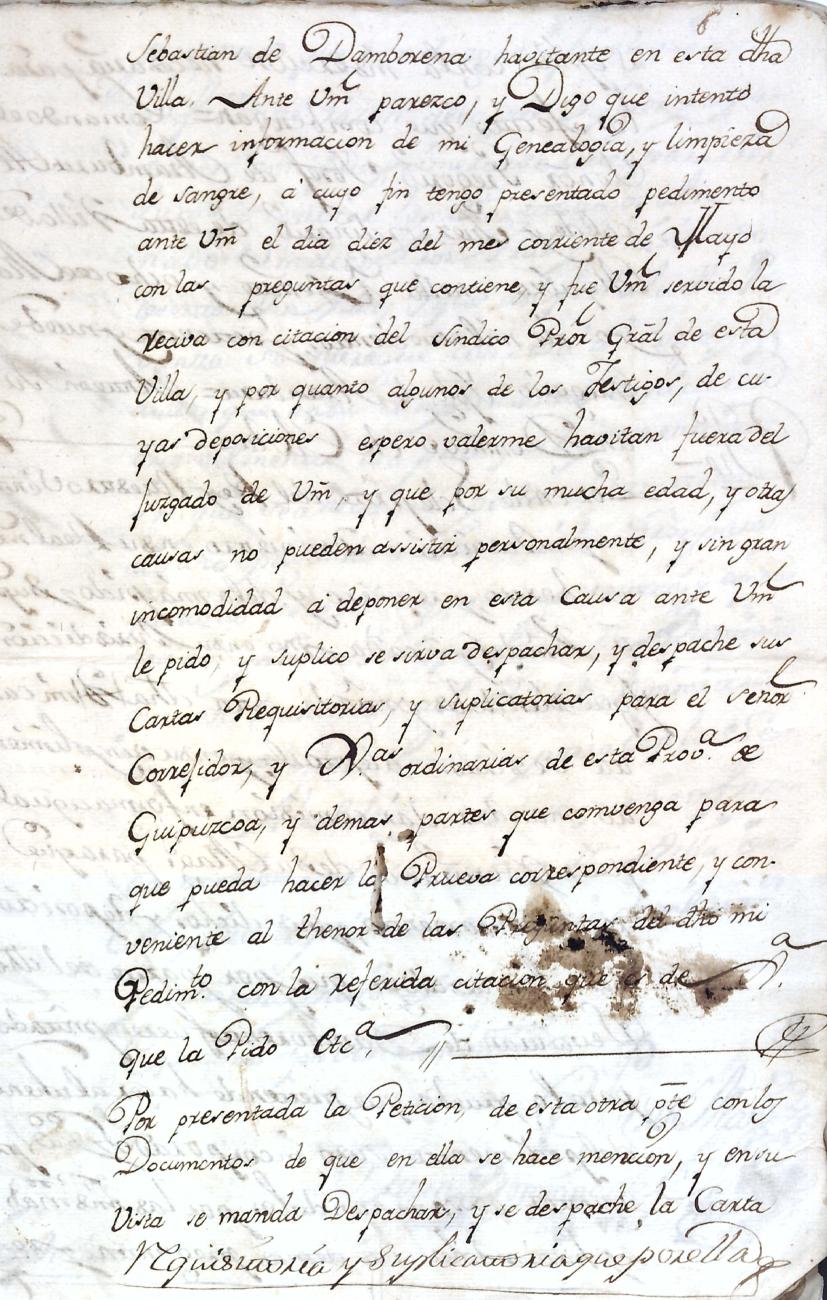 6
Sebastian de Damborena havitante en esta dha
Villa. Ante Vm parezco, y Digo que intento
hacer informacion de mi Genealogia, y limpieza
de sangre, a cuyo fin tengo presentado pedimento
ante Vm el dia diez del mes corriente de Mayo
con las preguntas que contiene, y fue Vm servido la
reciva con citacion del Sindico Pror Gral de esta
Villa, y por quanto algunos de los Testigos, de cu-
yas deposiciones espero valerme havitan fuera del
juzgado de Vm, y que por su mucha edad, y otras
causas no pueden assistir personalmente, y sin gran
incomodidad a deponer en esta Causa ante Vm
le pido, y suplico se sirva despachar, y despache sus
Cartas Requisitorias, y suplicatorias para el señor
Correjidor, y Jas ordinarias de esta Prova. de
Guipuzcoa, y demas partes que comvenga para
que pueda hacer la Prueva correspondiente, y con-
veniente al thenor de las Preguntas del dho mi
Pedimto. con la referida citacion que es de Ja.
que la Pido Etca.
Por presentada la Peticion, de esta otra pte con los
Documentos de que en ella se hace mencion, y en su
Vista se manda Despachar, y se despache la Carta
Requisitoria y Suplicatoria que por ella